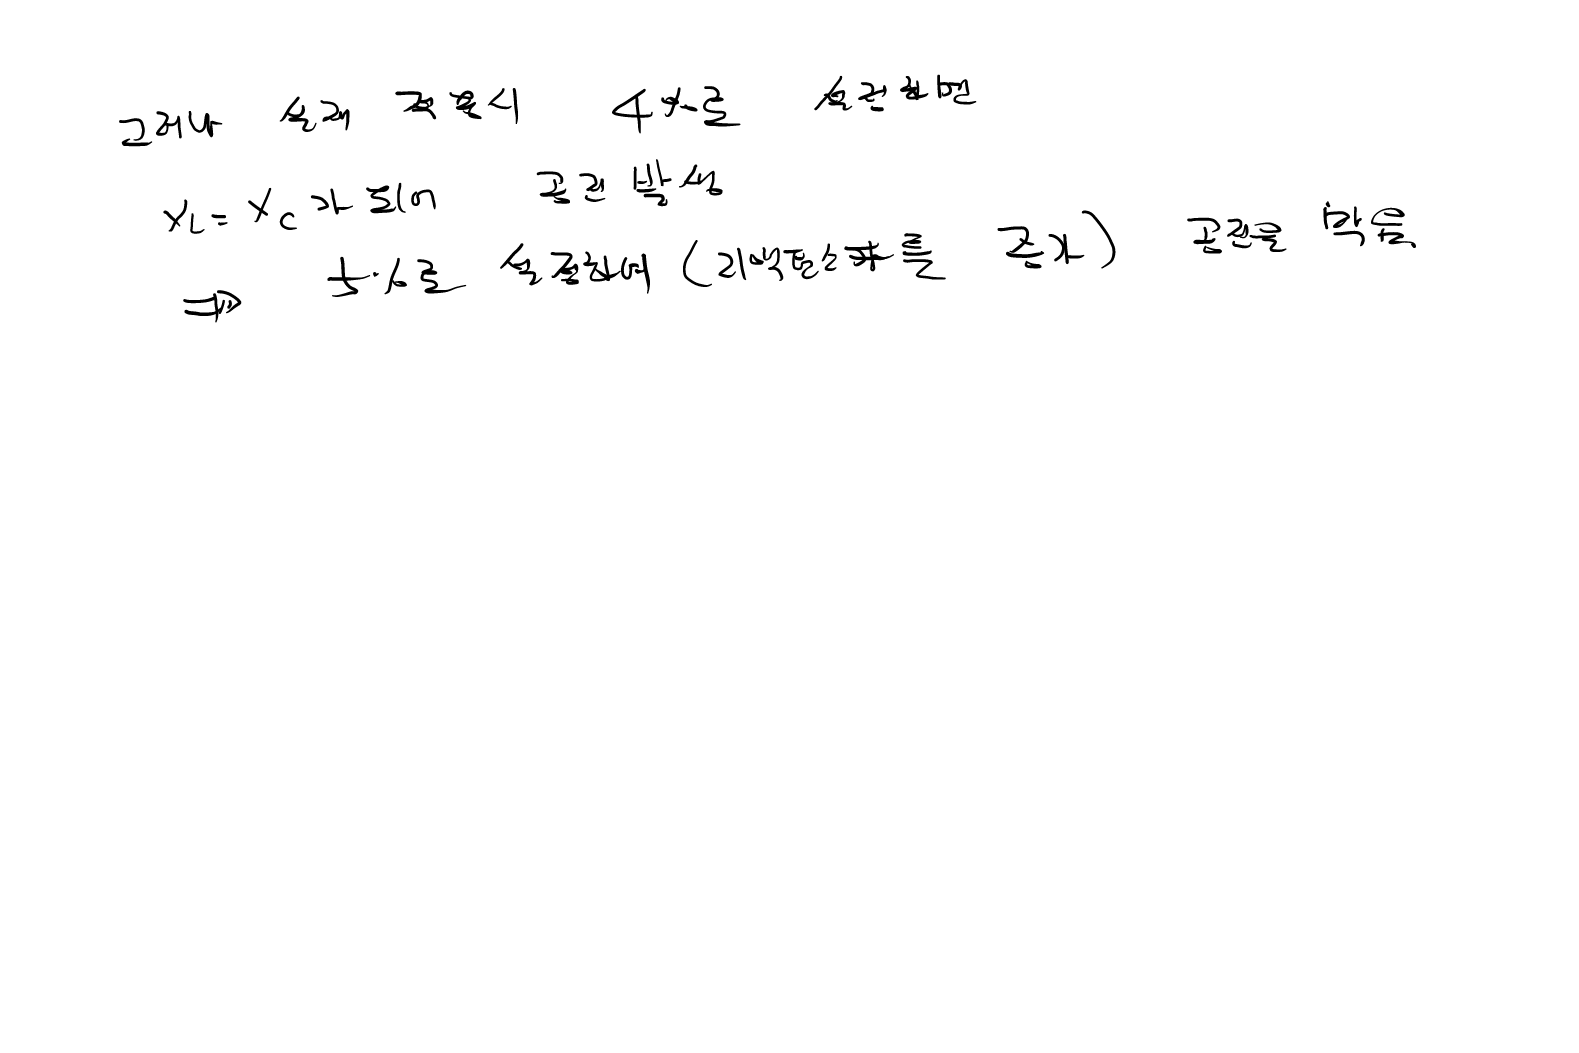 그러나 실제 적용시 4%로 설정하면
XL = XC가 되어 공진 발생
⇒ 5.%로 설정하여 (리액턴스를 증가) 공진을 막음